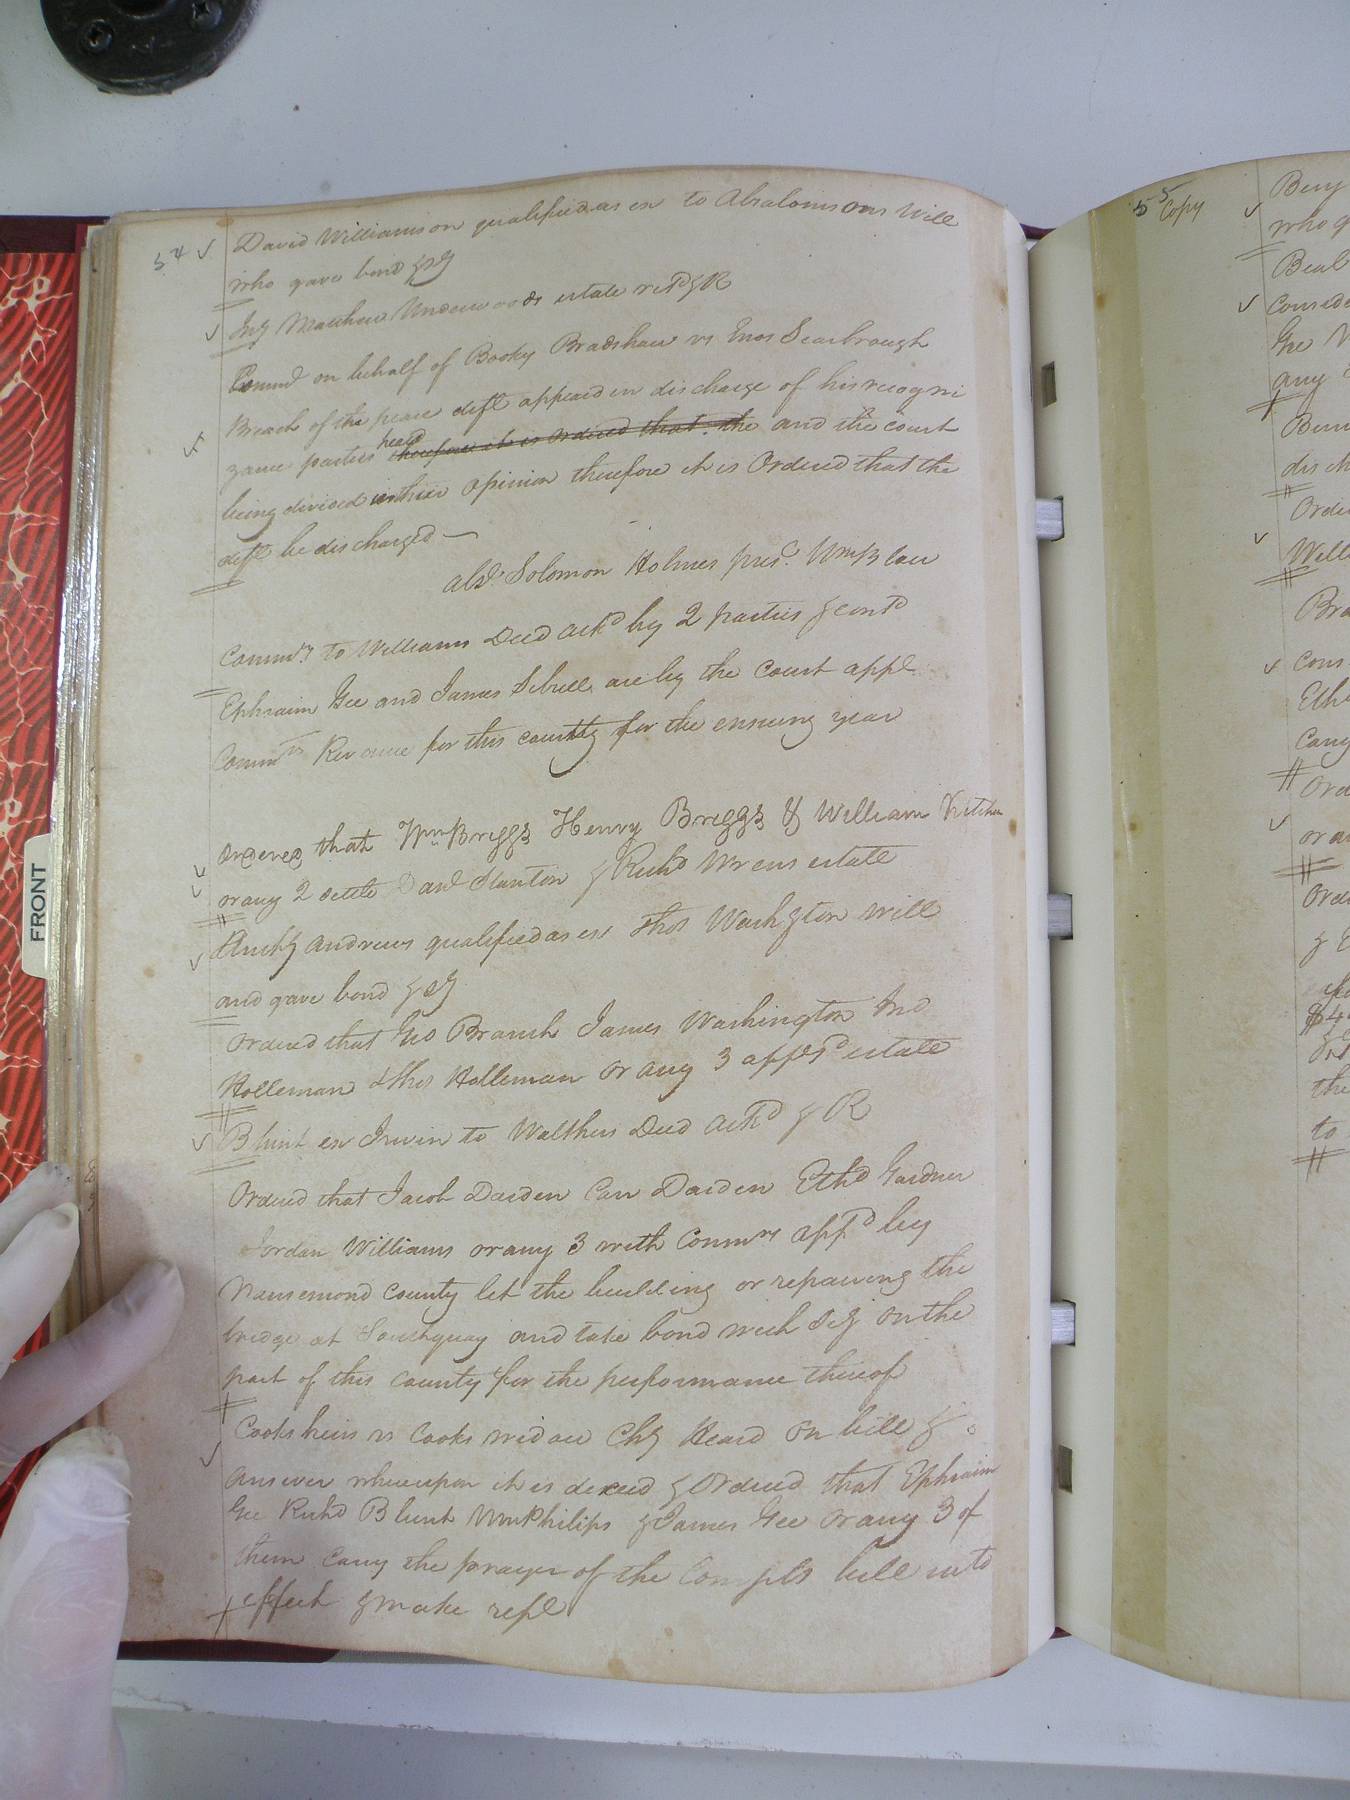 54
David Williamson qualified as ex to Absaloms ons Will
who gave bond & Sy
Iny Matthew Underwoods estate retd & R
Commd on behalf of Booky Bradshaw vs Enos Scarbrough
Breach of the peace deft appeard in discharge of his recogni
zance parties heard therefore it is Ordered that the and the court
being divided in their opinion therefore it is Ordered that the
deft be discharged
Absd Solomon Holmes presd Wm Blow
Commrs to Williams Deed ackd by 2 parties & contd
Ephraim Gee and James Sebrell are by the court appd
Commrs Revenue for this county for the ensuing year
ordered that Wm Briggs Henry Briggs & William Kitchen
or any 2 settle David Stanton & Richd Wrens estate
Andrews qualified as ex Thos Washgton will
and gave bond & Sy
Ordered that Geo Branch James Washington Jno
Holleman & Thos Holleman or any 3 estate
Blunt ex Irwin to Walthers Deed ackd & R
Ordered that Jacob Darden Carr Darden Ethd Gardner
Jordan Williams or any 3 with Commrs appd by
Nansemond County let the building or repairing the
bridge at Southquay and take bond with Sey on the
part of this county for the performance thereof
Cooks heirs vs Cooks widow Chy Heard on bill &
answer whereupon it is decreed & Ordered that Ephraim
Gee Richd Blunt Wm Philips & James Gee or any 3 of
them carry the prayer of the Complts bill into
effect & make repl
FRONT
55
Copy
Benj
who q
Beal
Conside
Gee
any
disch
Orde
Will
Bra
cons
Ethe
Carry
Orde
or an
Orde
the
to